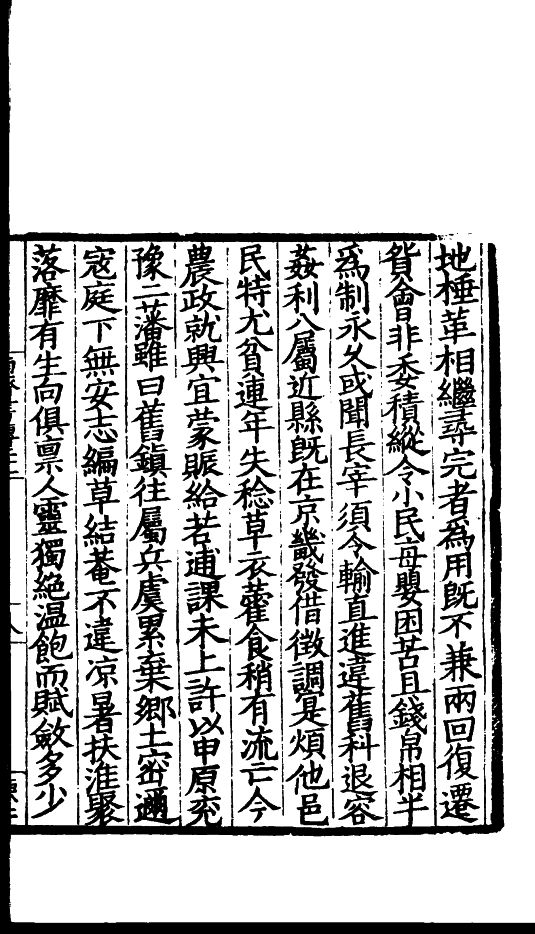 地種革相繼尋完者為用既不兼兩回復遷
貲會非委積縱令小民每嬰困苦且錢帛相半
爲制永久或聞長宰須令輸直進違舊科退容
姦利八屬近縣既在京畿發借徵調寔煩他邑
民特尤貧連年失稔草衣藿食稍有流亡今
農政就興宜蒙賑給若逋課未上許以申原兖
豫二藩雖曰舊鎮往屬兵虞累棄鄉土密邇
寇庭下無安志編草結菴不違凉暑扶淮聚
落靡有生向俱稟人靈獨絕温飽而賦斂多少